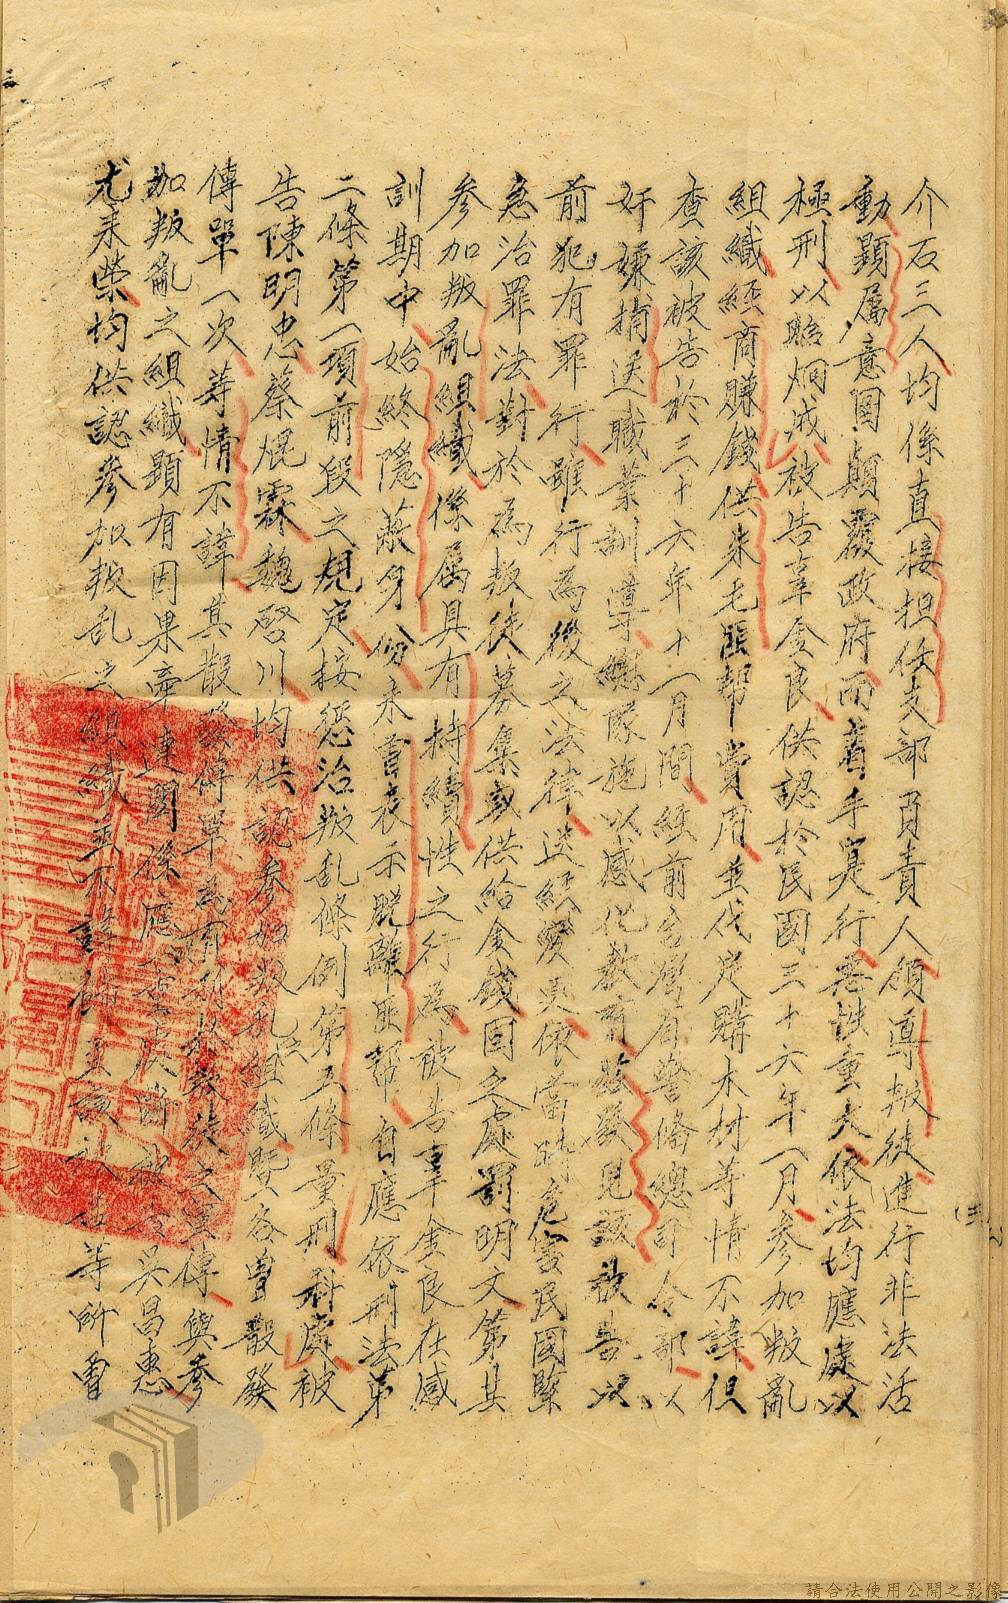 介石三人均係直接担任支部負責人領導叛徒進行非法活
動顯屬意圖顛覆政府而着手實行惡性重大依法均應處以
極刑以昭炯戒被告辜金良供認於民國三十六年一月參加叛亂
組織經商賺錢供朱毛匪幫費用並代兄購木材等情不諱但
查該被告於三十六年十一月間經前台灣省警備總司令部以
奸嫌捕送職業訓導總隊施以感化教育茲發見該被告以
前犯有罪行雖行為後之法律迭經變更依當時危害民國緊
急治罪法對於為叛徒募集或供給金錢固有處罰明文第其
參加叛亂組織係屬具有持續性之行為被告辜金良在感
訓期中始終隱蔽身份未嘗表示脫離匪幫自應依刑法第
二條第一項前段之規定按懲治叛乱條例第五條量刑科處被
告陳明忠蔡焜霖魏啓川均供認參加叛乱組織暨各曾散發
傳單一次等情不諱其散發傳單為有利於叛徒之宣傳與參
加叛亂之組織顯有因果牽連關係應從重處斷被告吳昌惠
尤来榮均供認參加叛乱之組織並不諱 該被告等所曾
(三)
請合法使用公開之影像